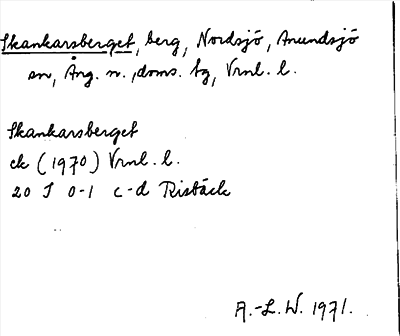 Skankarsberget, berg, Nordsjö, Anundsjö
sn, Ång. n., doms. tg, Vrnl. l.
Skankarsberget
ek (1970) Vrnl. l.
20 J 0-1 c-d Risbäck
A.-L. W. 1971.